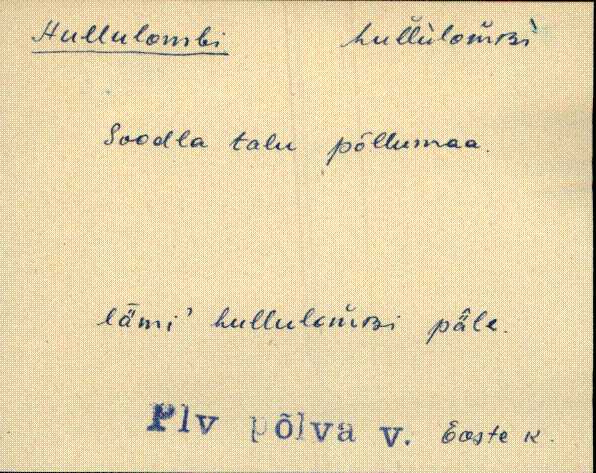 Hullulombi hullulom̆ʙi
Soodla talu põllumaa.
lämi' hullulom̆ʙi päle.
Plv põlva v. Eoste k.